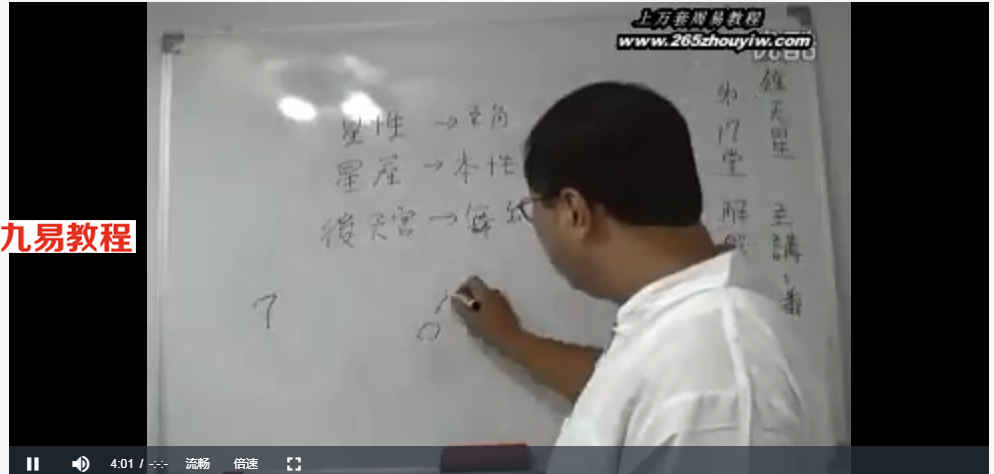 上万套周易教程
www.265zhouyiw.com
星性 → 主角
星座 → 本性
後天宮 →
第17堂
解
天星
主講
九易教程
7
0
4:01 / -:-:-
流畅
倍速